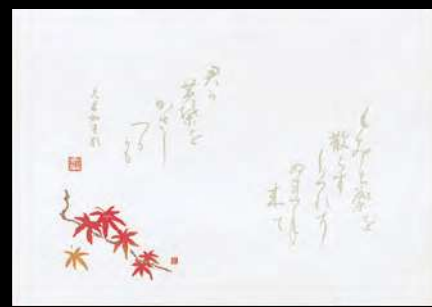 もみち葉を
散らす
しくれに
ぬれて
来て
君か
黄葉を
かさし
つるかも